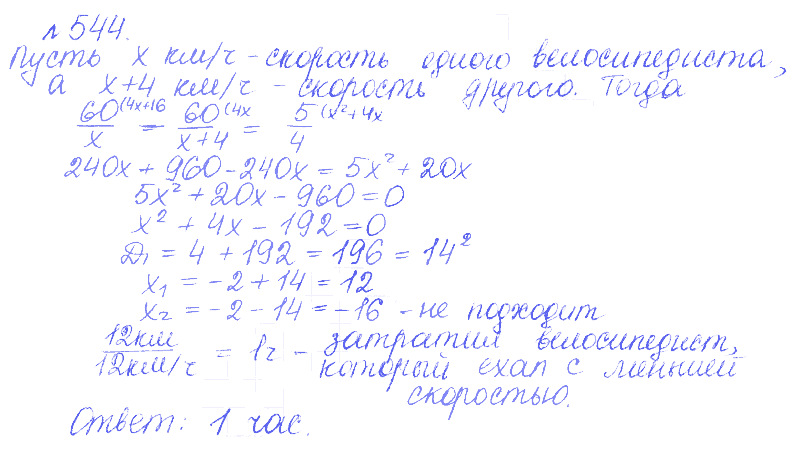 № 544.
Пусть x км/ч - скорость одного велосипедиста,
а x+4 км/ч - скорость другого. Тогда
60(4x+16 / x = 60(4x / x+4 = 5(x²+4x / 4
240x + 960 - 240x = 5x² + 20x
5x² + 20x - 960 = 0
x² + 4x - 192 = 0
D₁ = 4 + 192 = 196 = 14²
x₁ = -2 + 14 = 12
x₂ = -2 - 14 = -16 - не подходит
12км / 12км/ч = 1ч - затратил велосипедист,
который ехал с меньшей
скоростью.
Ответ: 1 час.